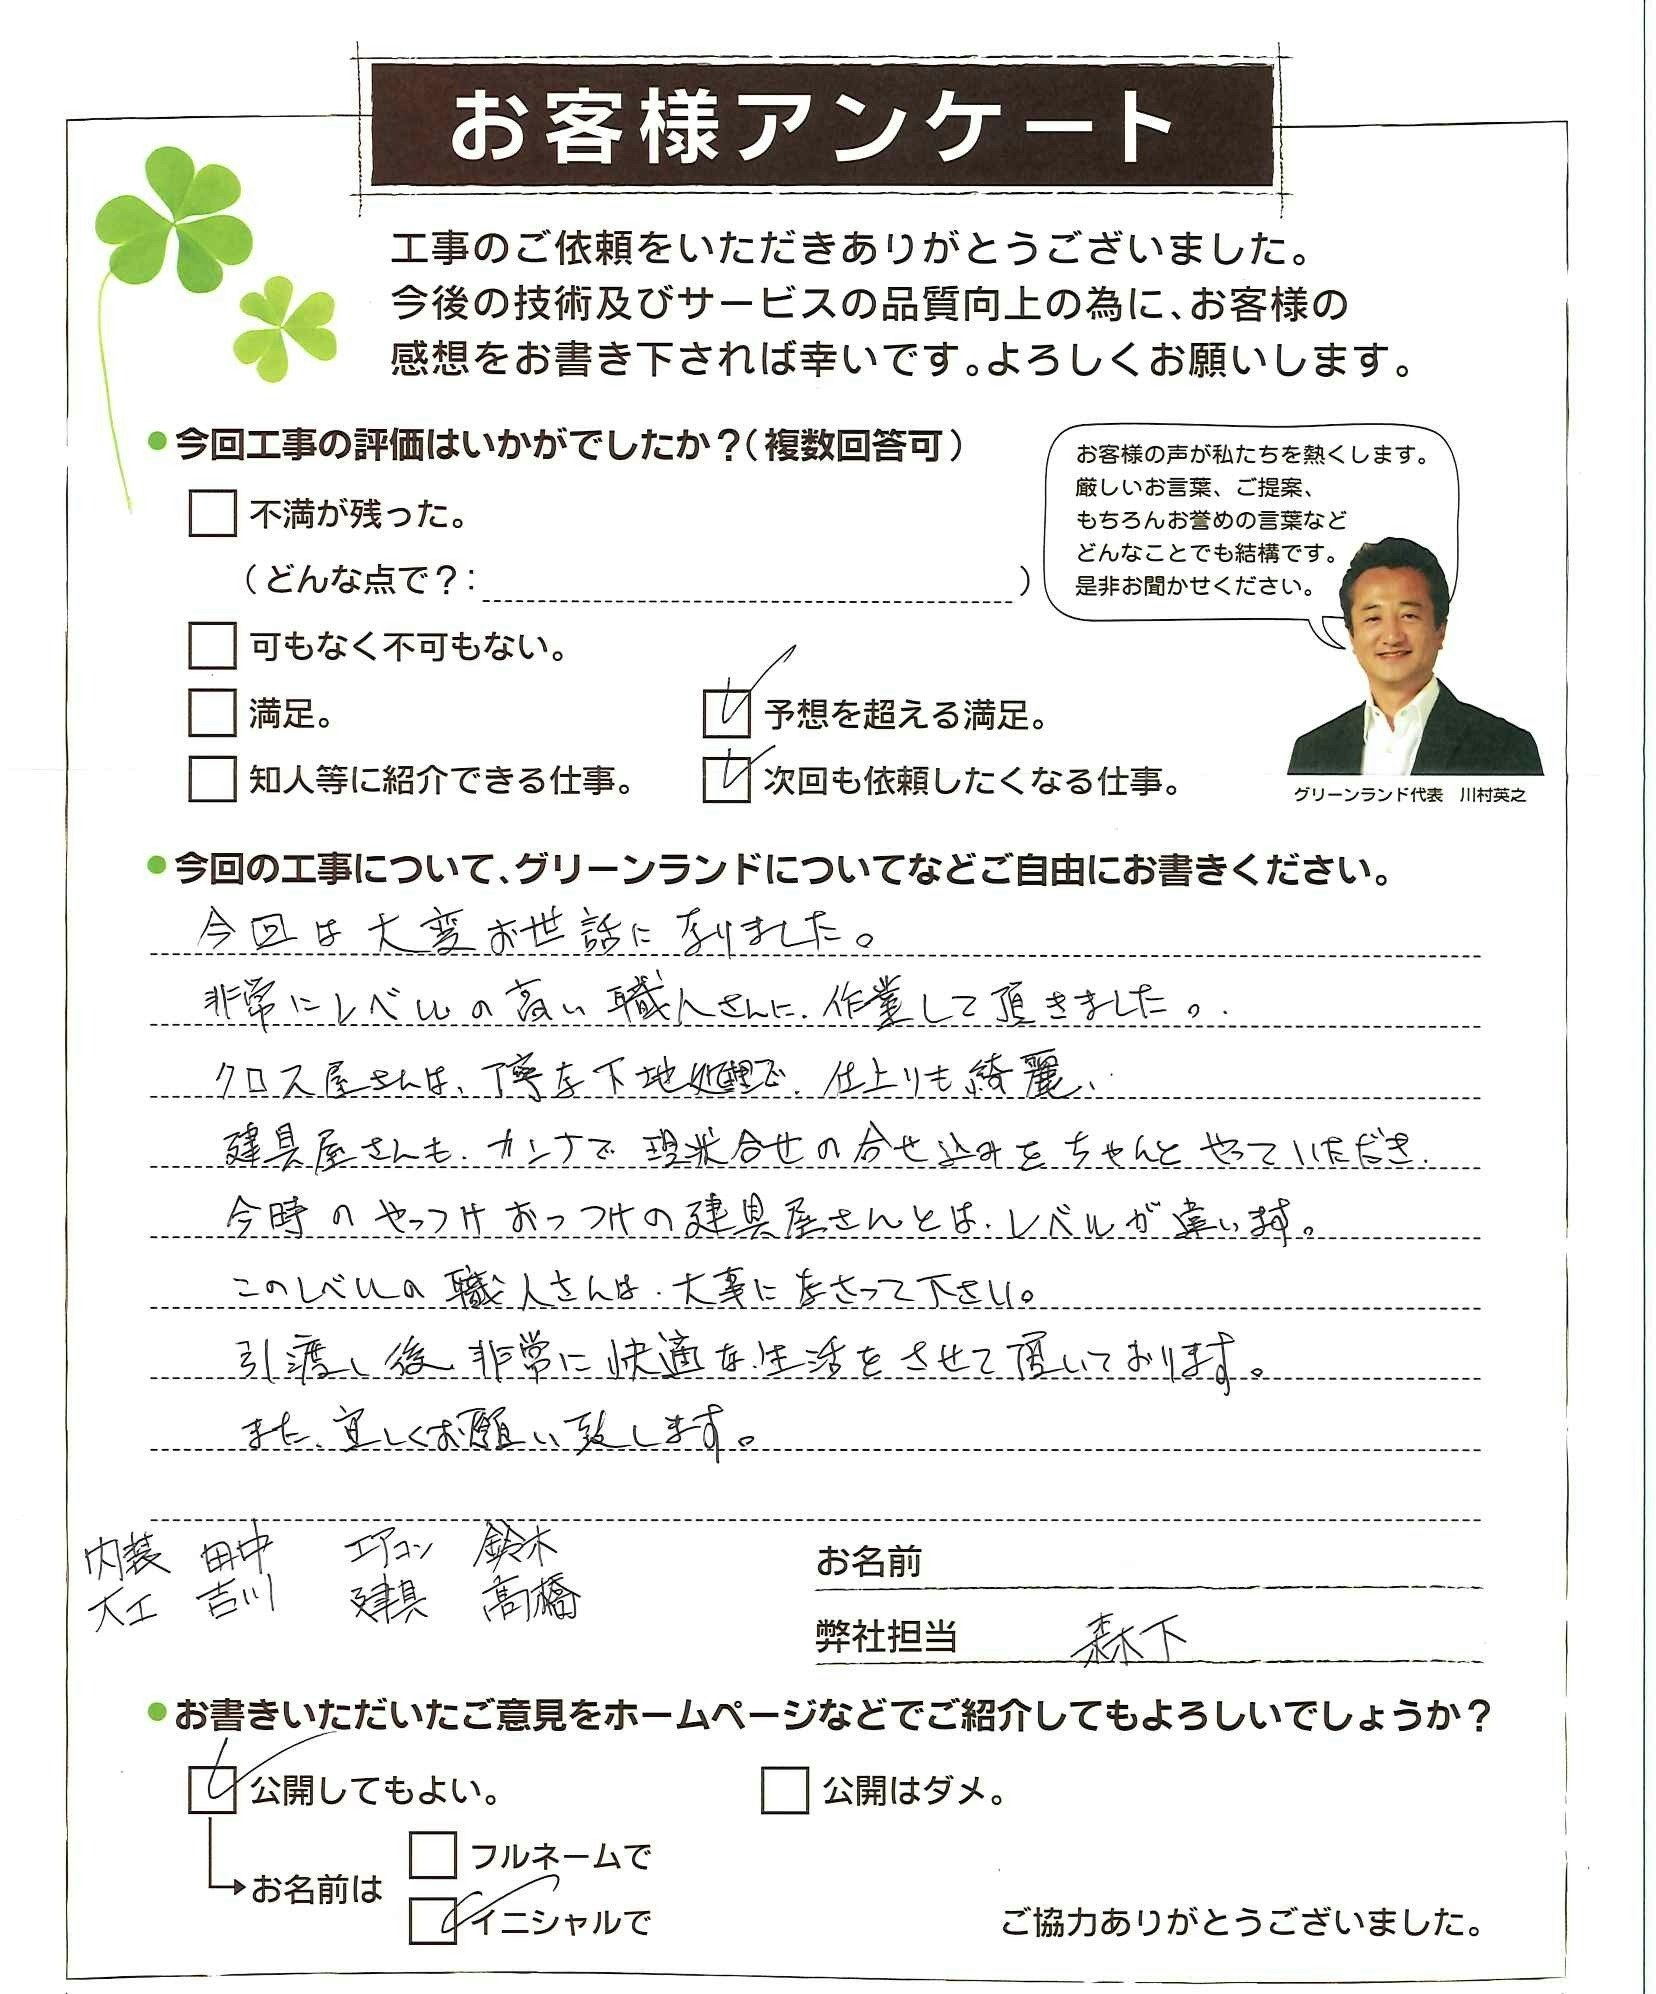 お客様アンケート
工事のご依頼をいただきありがとうございました。
今後の技術及びサービスの品質向上の為に、お客様の
感想をお書き下されば幸いです。よろしくお願いします。
●今回工事の評価はいかがでしたか？（複数回答可）
不満が残った。
（どんな点で？：　）
可もなく不可もない。
満足。
予想を超える満足。
知人等に紹介できる仕事。
次回も依頼したくなる仕事。
お客様の声が私たちを熱くします。
厳しいお言葉、ご提案、
もちろんお誉めの言葉など
どんなことでも結構です。
是非お聞かせください。
グリーンランド代表　川村英之
●今回の工事について、グリーンランドについてなどご自由にお書きください。
今回は大変お世話になりました。
非常にレベルの高い職人さんに、作業して頂きました。
クロス屋さんは、丁寧な下地処理で、仕上りも綺麗、
建具屋さんも、カンナで現米合せの合せ込みをちゃんとやっていただき、
今時のやっつけおっつけの建具屋さんとは、レベルが違います。
このレベルの職人さんは、大事になさって下さい。
引渡し後、非常に快適な生活をさせて頂いております。
また、宜しくお願い致します。
内装　田中　エアコン　鈴木
大工　吉川　建具　高橋
お名前
弊社担当　森下
●お書きいただいたご意見をホームページなどでご紹介してもよろしいでしょうか？
公開してもよい。
公開はダメ。
お名前は
フルネームで
イニシャルで
ご協力ありがとうございました。